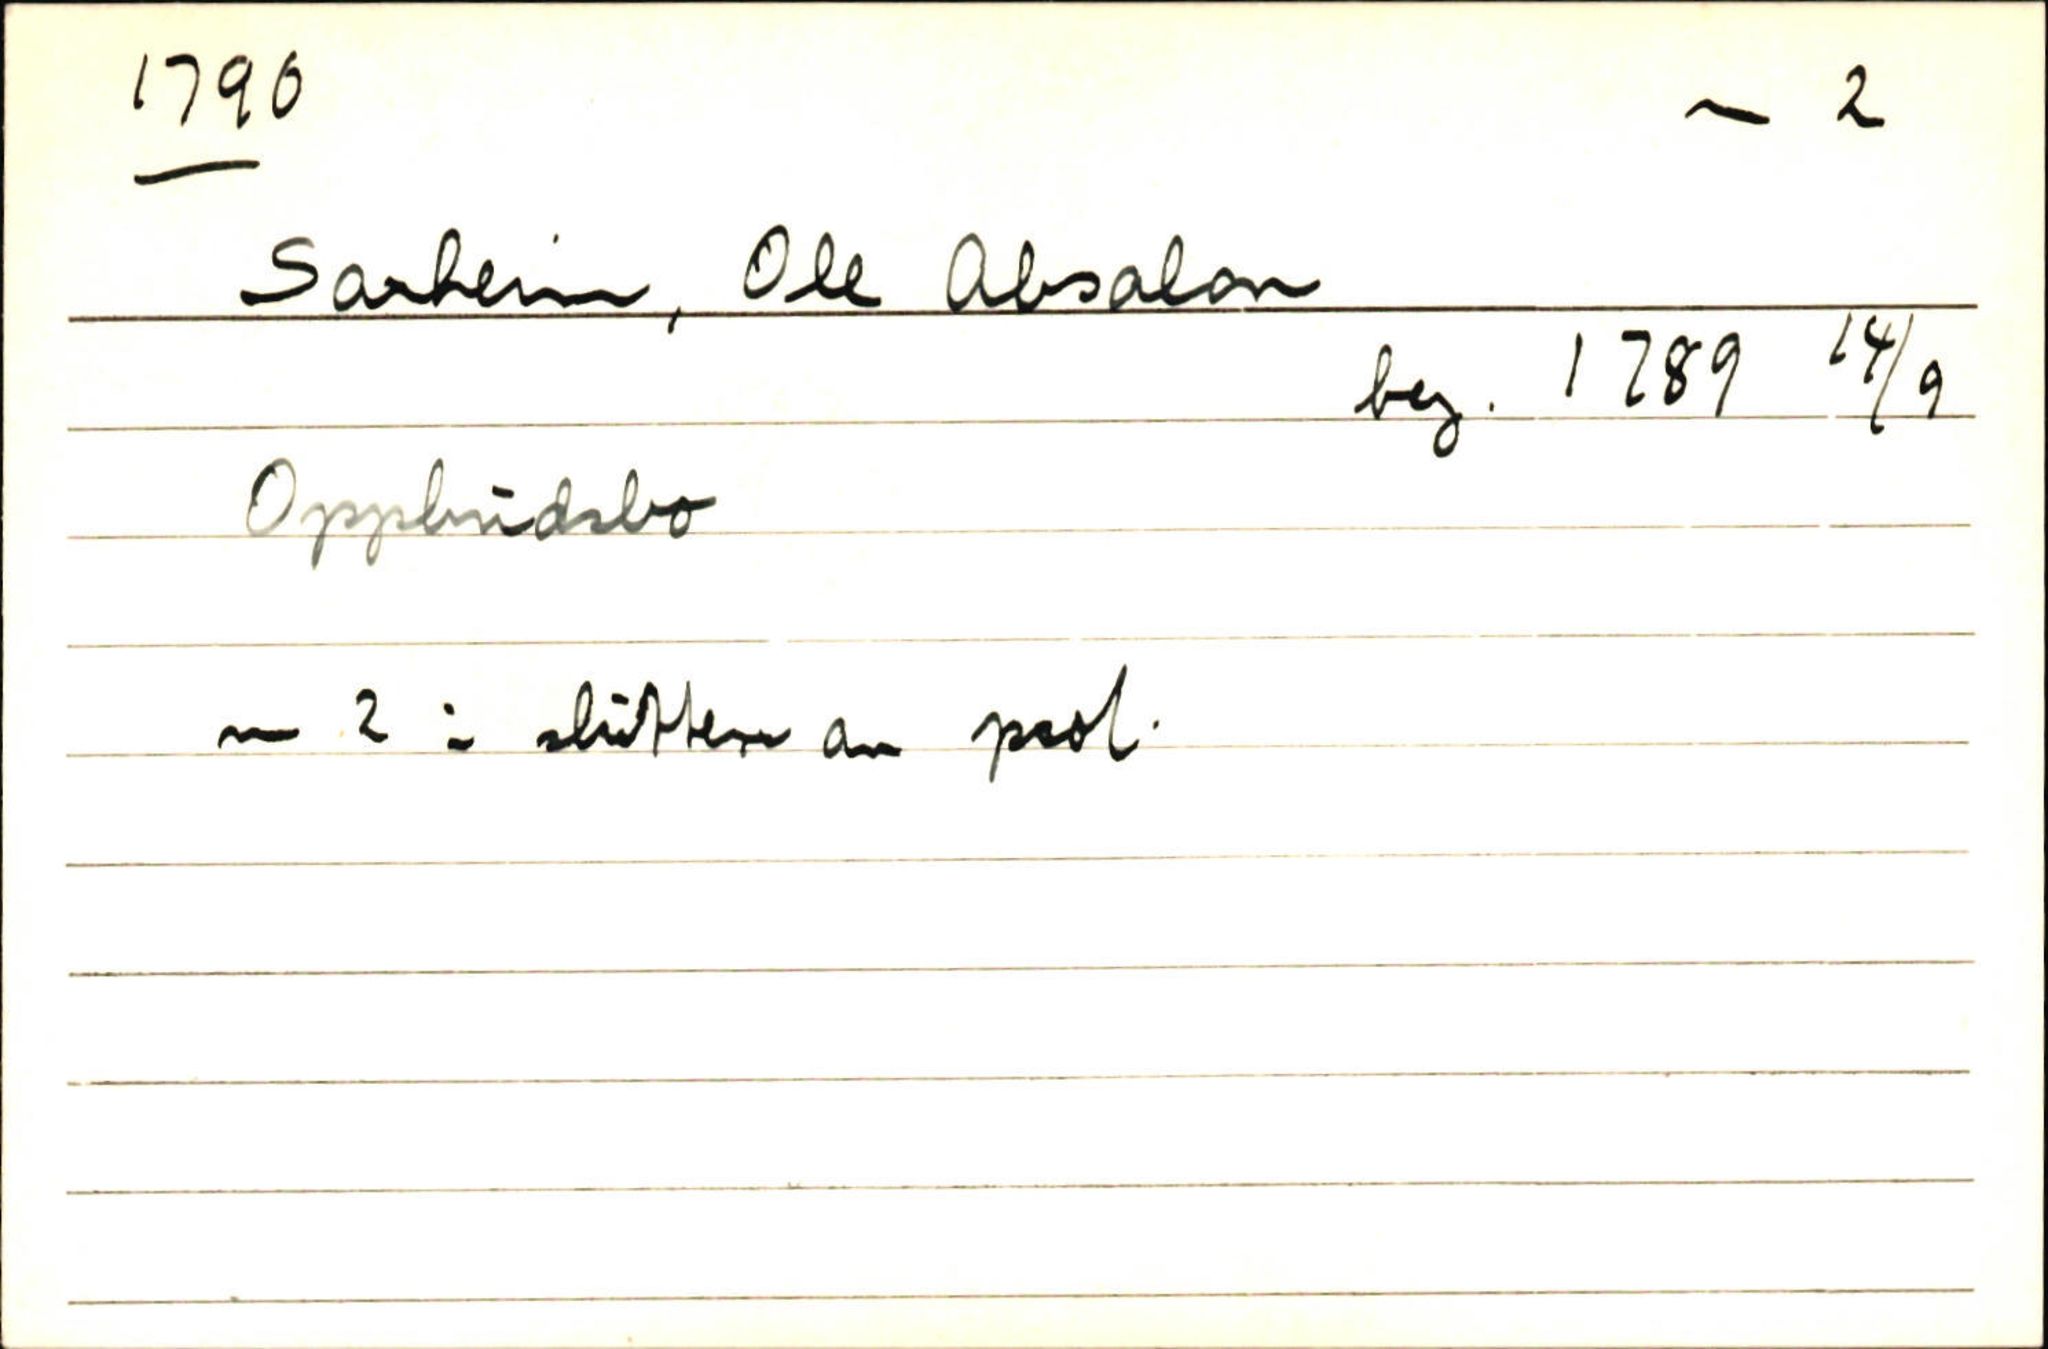 1790 ~ 2
Sarheim, Ole Absalon
beg. 1789 14/9
Oppbudsbo
~ 2 i slutten av prot.